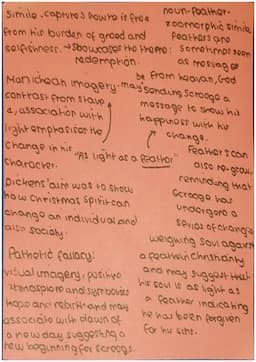 Simile, captures how he is free
from his burden of greed and
selfishness. → showcases the theme:
redemption.
Manichean imagery: may be
contrast from stave
1, association with
light emphasises the
change in his
character.
"As light as a feather"
Dickens' aim was to show
how christmas spirit can
change an individual and
also society.
Pathetic fallacy:
visual imagery, positive
atmosphere and symbolises
hope and rebirth and may
associate with dawn of
a new day suggesting a
new beginning for scrooge.
noun-feather-
zoomorphic simile,
feathers are
sometimes seen
as messages
from heaven, God
sending scrooge a
message to show his
happiness with his
change.
Feathers can
also re-grow,
reminding that
scrooge has
undergone a
series of change
weighing soul against
a feather christianity
and may suggest that
his soul is as light as
a feather indicating
he has been forgiven
for his sins.